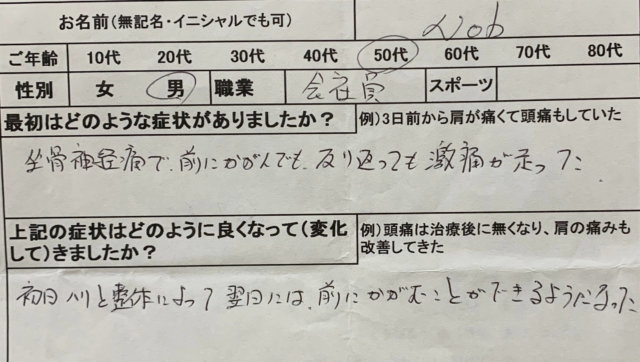 お名前（無記名・イニシャルでも可） Nob
ご年齢 10代 20代 30代 40代 50代 60代 70代 80代
性別 女 男 職業 会社員 スポーツ
最初はどのような症状がありましたか？ 例）3日前から肩が痛くて頭痛もしていた
坐骨神経痛で、前にかがんでも、反り返っても激痛が走った
上記の症状はどのように良くなって（変化して）きましたか？ 例）頭痛は治療後に無くなり、肩の痛みも改善してきた
初日ハリと整体によって翌日には、前にかがむことができるようになった